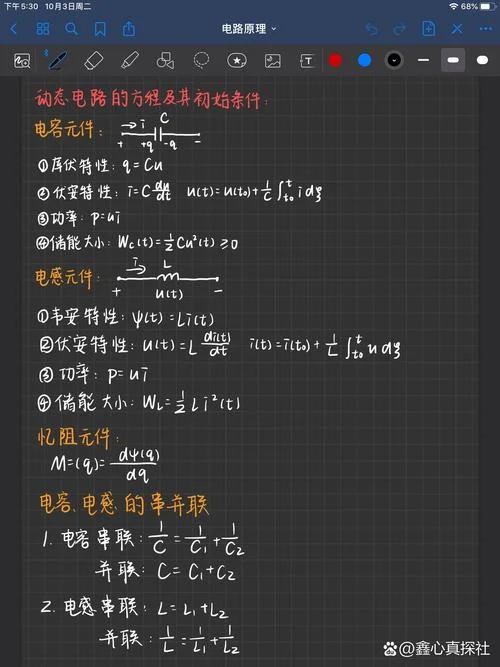 下午5:30 10月3日周二 68%
电路原理
动态电路的方程及其初始条件:
电容元件: i C + +q -q -
①库伏特性: q=Cu
②伏安特性: i=C du/dt u(t)=u(t₀)+1/C ∫t₀^t i dξ
③功率: p=ui
④储能大小: Wc(t)=½Cu²(t)≥0
电感元件: i L + u(t) -
①韦安特性: ψ(t)=Li(t)
②伏安特性: u(t)=L di(t)/dt i(t)=i(t₀)+1/L ∫t₀^t u dξ
③功率: p=ui
④储能大小: WL=½Li²(t)
忆阻元件:
M=(q)=dψ(q)/dq
电容、电感的串并联
1. 电容串联: 1/C=1/C₁+1/C₂
并联: C=C₁+C₂
2. 电感串联: L=L₁+L₂
并联: 1/L=1/L₁+1/L₂
鑫心真探社